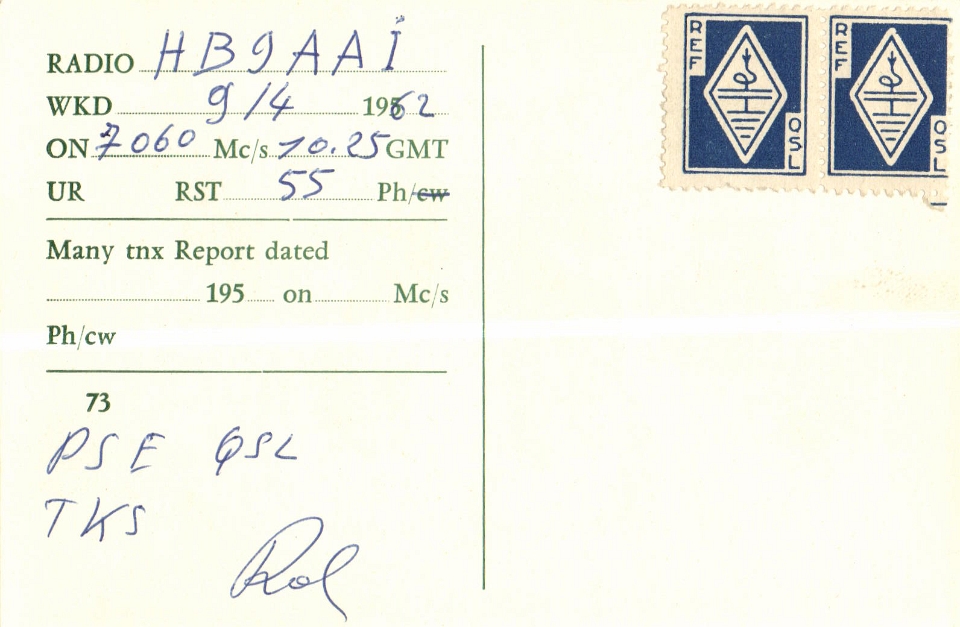 RADIO HB9AAI
WKD 9/4 1962
ON 7060 Mc/s 10.25 GMT
UR RST 55 Ph/cw
Many tnx Report dated
195 on Mc/s
Ph/cw
73
PSE QSL
TKS
Rol
REF QSL
REF QSL